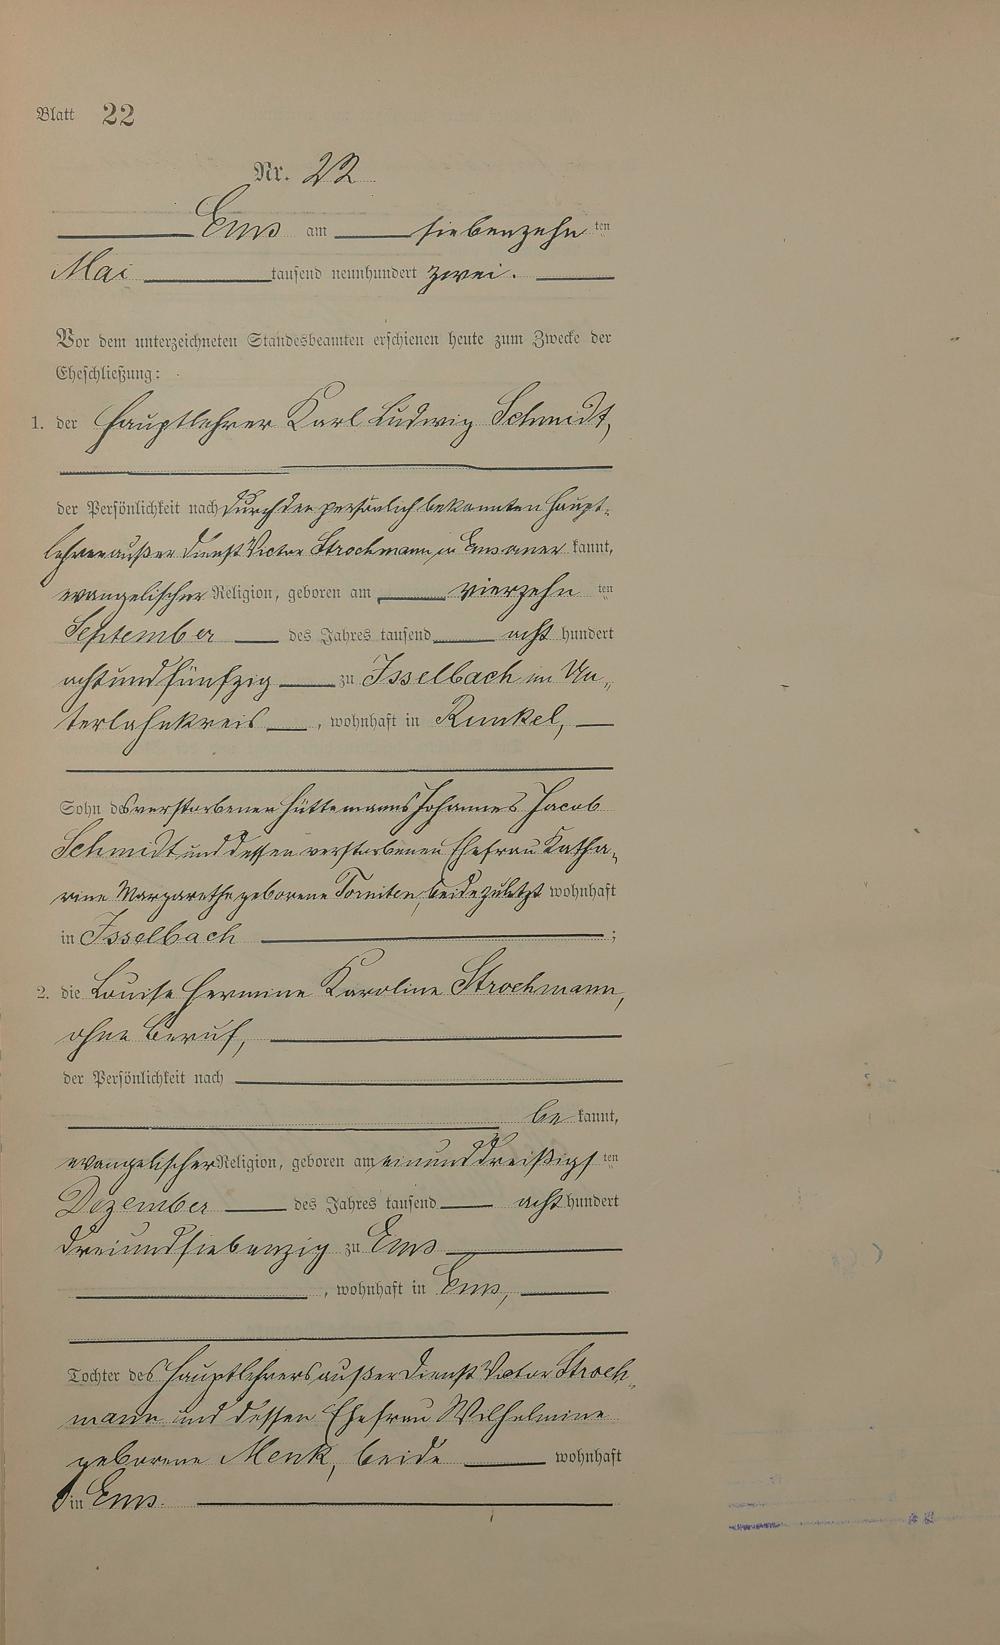 Blatt 22
Nr. 22
Ems am siebenzehn ten
Mai tausend neunhundert zwei.
Vor dem unterzeichneten Standesbeamten erschienen heute zum Zwecke der
Eheschließung:
1. der Hauptlehrer Karl Ludwig Schmidt,
der Persönlichkeit nach durch den persönlich bekannten Haupt-
lehrer außer Dienst Victor Strochmann in Ems aner kannt,
evangelischer Religion, geboren am vierzehn ten
September des Jahres tausend acht hundert
achtundfünfzig zu Isselbach im Un-
terlahnkreis, wohnhaft in Runkel,
Sohn des verstorbenen Hüttemanns Johannes Jacob
Schmidt und dessen verstorbenen Ehefrau Katha-
rine Margarethe geborene beide zuletzt wohnhaft
in Isselbach ;
2. die Louise Hermine Karoline Strochmann,
ohne Beruf,
der Persönlichkeit nach
be kannt,
evangelischer Religion, geboren am einunddreißigs ten
Dezember des Jahres tausend acht hundert
dreiundsiebenzig zu Ems
, wohnhaft in Ems,
Tochter des Hauptlehrers außer Dienst Victor Stroch-
mann und dessen Ehefrau Wilhelmine
geborene Menk, beide wohnhaft
in Ems.